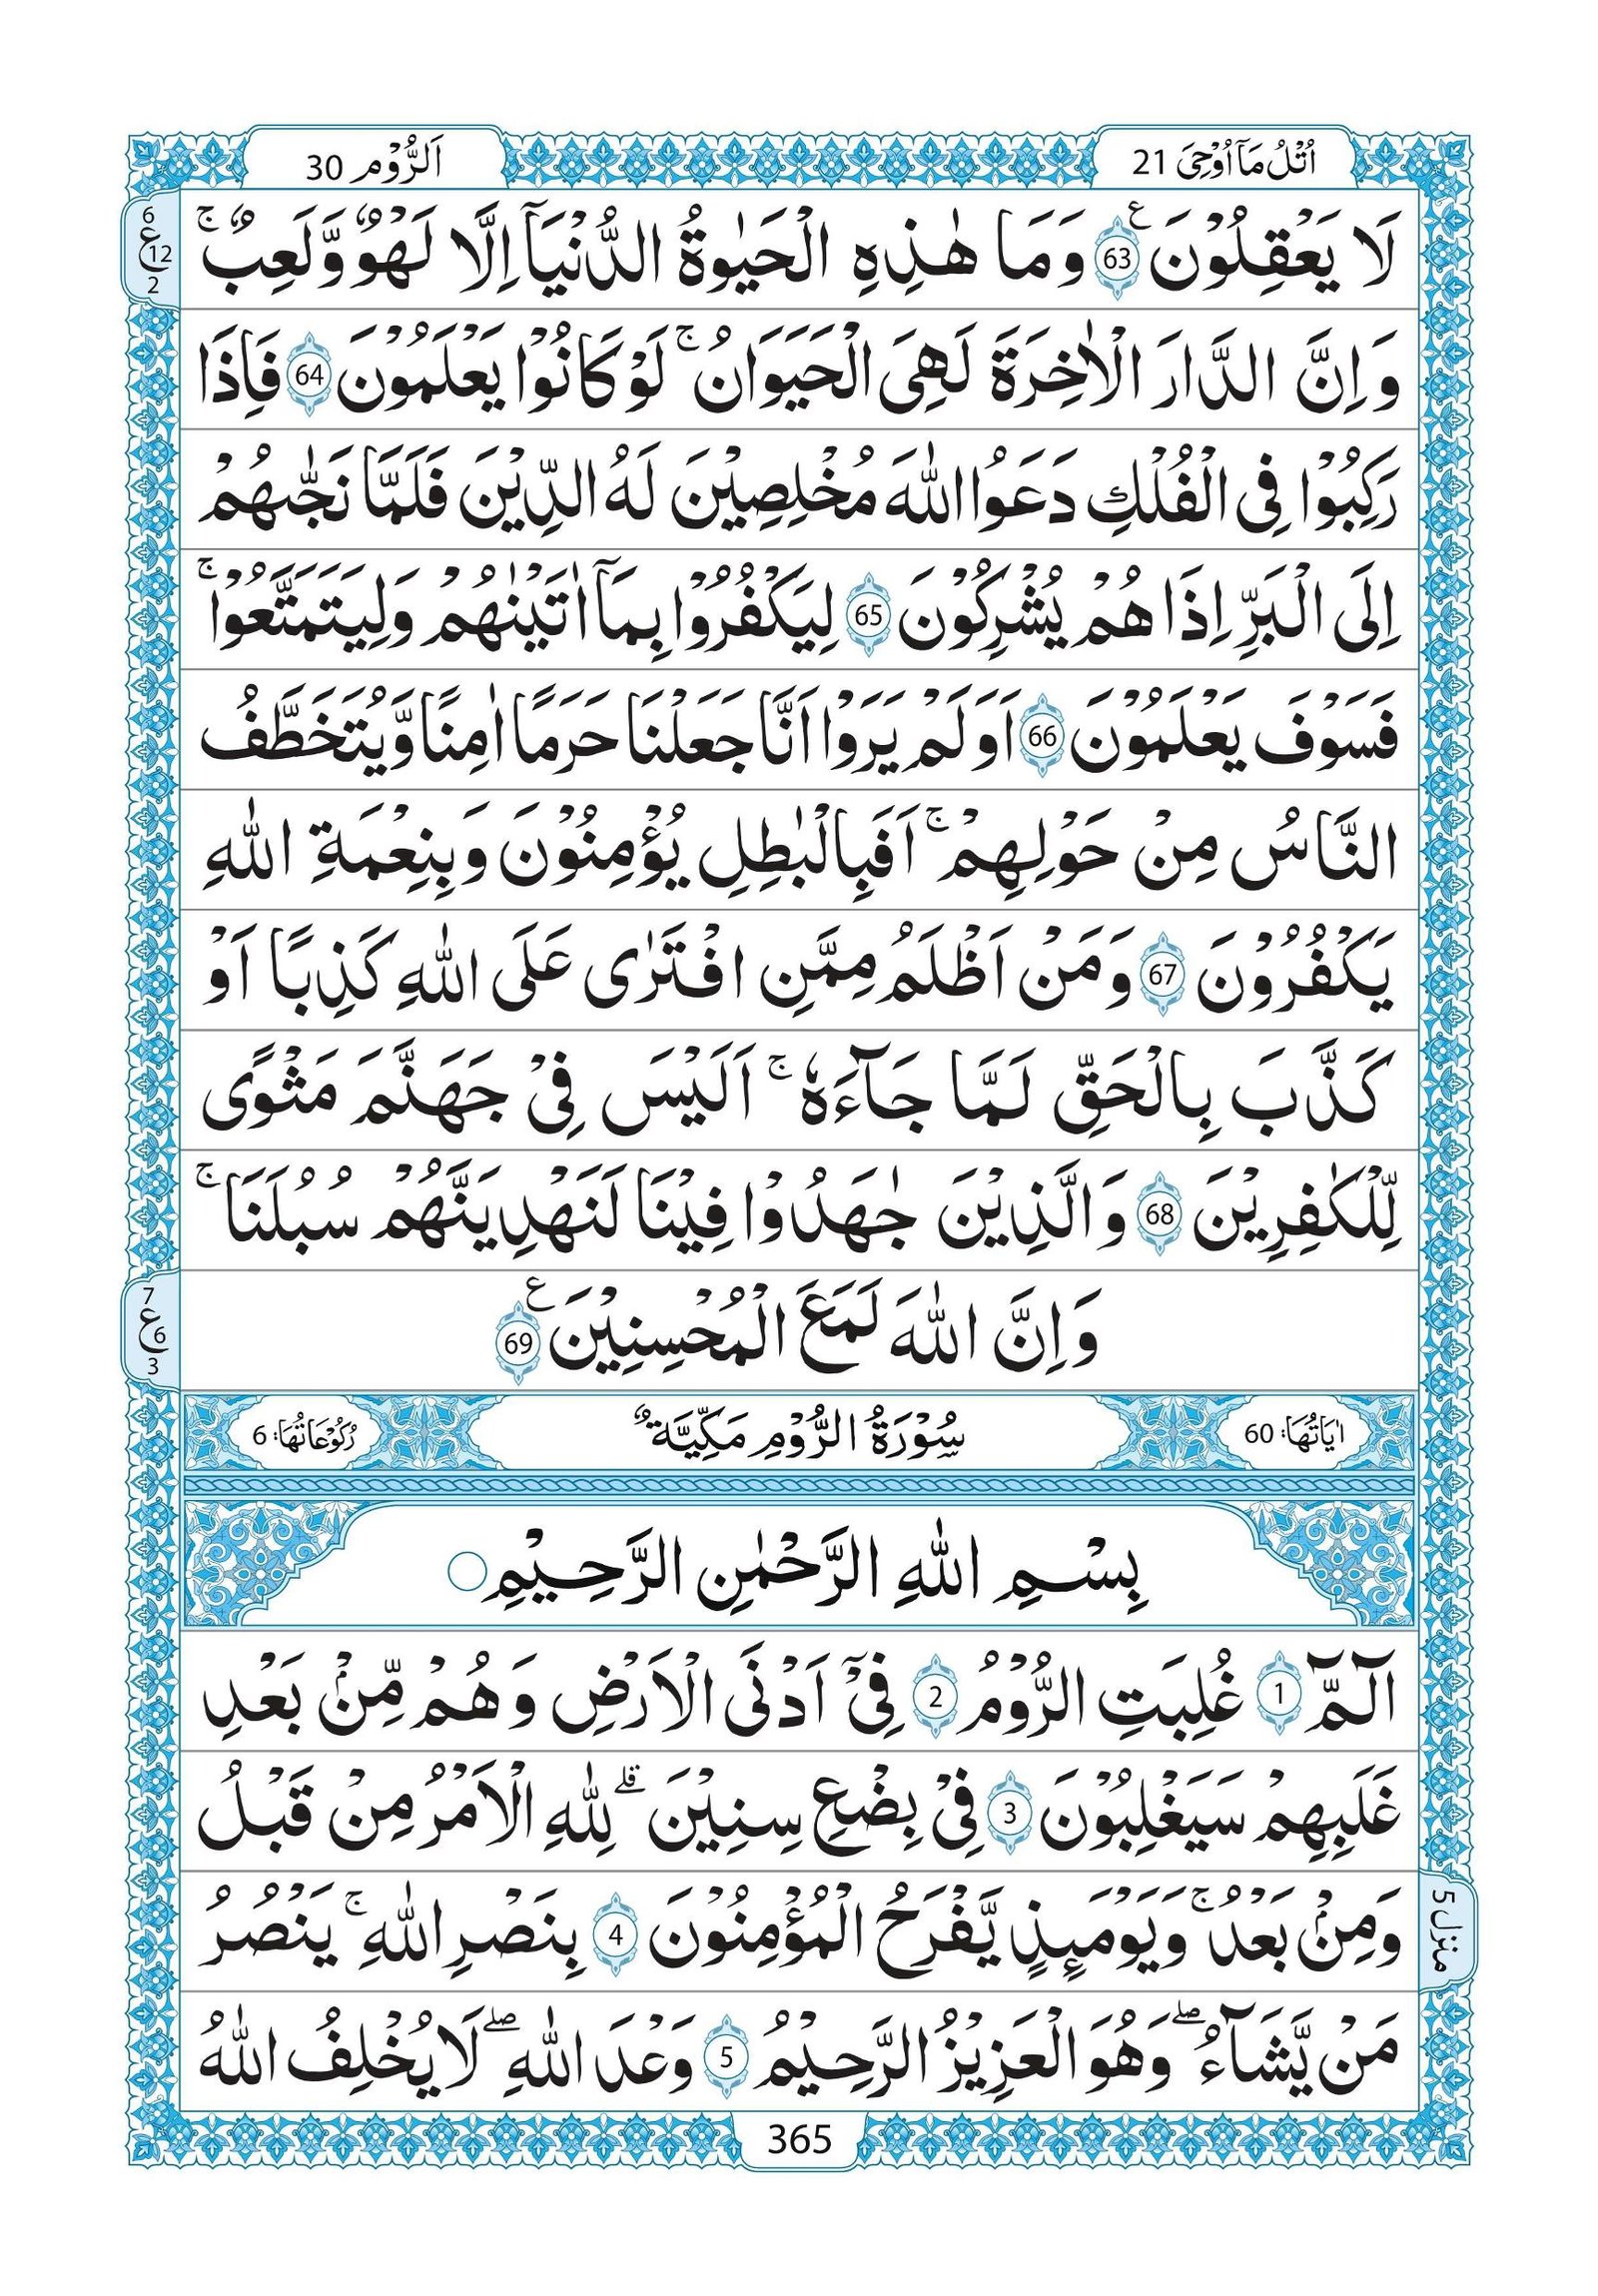 اُتْلُ مَآ اُوْحِيَ 21
اَلرُّوْم 30
لَا يَعْقِلُوْنَ ࣖ 63 وَمَا هٰذِهِ الْحَيٰوةُ الدُّنْيَآ اِلَّا لَهْوٌ وَّلَعِبٌ ۚ
6
ع 12
2
وَاِنَّ الدَّارَ الْاٰخِرَةَ لَهِىَ الْحَيَوَانُ ۚ لَوْ كَانُوْا يَعْلَمُوْنَ 64 فَاِذَا
رَكِبُوْا فِى الْفُلْكِ دَعَوُا اللّٰهَ مُخْلِصِيْنَ لَهُ الدِّيْنَ فَلَمَّا نَجّٰىهُمْ
اِلَى الْبَرِّ اِذَا هُمْ يُشْرِكُوْنَ 65 لِيَكْفُرُوْا بِمَآ اٰتَيْنٰهُمْ وَلِيَتَمَتَّعُوْا ۚ
فَسَوْفَ يَعْلَمُوْنَ 66 اَوَلَمْ يَرَوْا اَنَّا جَعَلْنَا حَرَمًا اٰمِنًا وَّيُتَخَطَّفُ
النَّاسُ مِنْ حَوْلِهِمْ ۚ اَفَبِالْبٰطِلِ يُؤْمِنُوْنَ وَبِنِعْمَةِ اللّٰهِ
يَكْفُرُوْنَ 67 وَمَنْ اَظْلَمُ مِمَّنِ افْتَرٰى عَلَى اللّٰهِ كَذِبًا اَوْ
كَذَّبَ بِالْحَقِّ لَمَّا جَآءَهٗ ۚ اَلَيْسَ فِىْ جَهَنَّمَ مَثْوًى
لِّلْكٰفِرِيْنَ 68 وَالَّذِيْنَ جٰهَدُوْا فِيْنَا لَنَهْدِيَنَّهُمْ سُبُلَنَا ۚ
وَاِنَّ اللّٰهَ لَمَعَ الْمُحْسِنِيْنَ ࣖ 69
7
ع 6
3
اٰيَاتُهَا: 60
سُوْرَةُ الرُّوْمِ مَكِّيَّةٌ
رُكُوْعَاتُهَا: 6
بِسْمِ اللّٰهِ الرَّحْمٰنِ الرَّحِيْمِ
الٓمّٓ 1 غُلِبَتِ الرُّوْمُ 2 فِىْٓ اَدْنَى الْاَرْضِ وَهُمْ مِّنْۢ بَعْدِ
غَلَبِهِمْ سَيَغْلِبُوْنَ 3 فِىْ بِضْعِ سِنِيْنَ ۗ لِلّٰهِ الْاَمْرُ مِنْ قَبْلُ
وَمِنْۢ بَعْدُ ۚ وَيَوْمَئِذٍ يَّفْرَحُ الْمُؤْمِنُوْنَ 4 بِنَصْرِ اللّٰهِ ۚ يَنْصُرُ
منزل 5
مَنْ يَّشَآءُ ۖ وَهُوَ الْعَزِيْزُ الرَّحِيْمُ 5 وَعْدَ اللّٰهِ ۖ لَا يُخْلِفُ اللّٰهُ
365